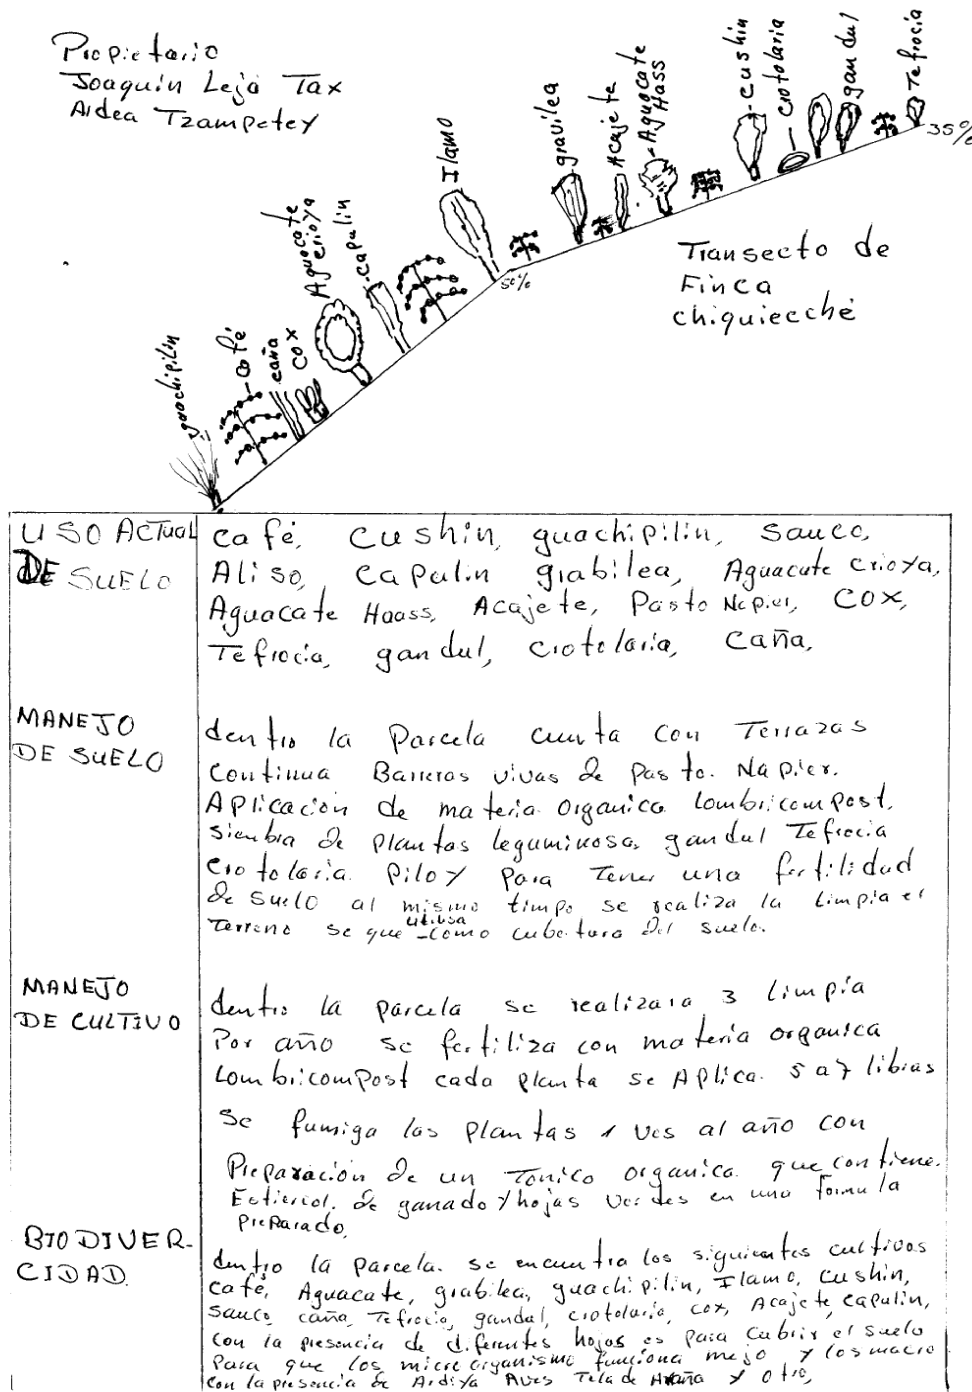 Propietario
Joaquín Lejá Tax
Aldea Tzampetey
guachipilín
café
caña
cox
Aguacate
crioya
capulin
Ilamo
gravilea
Acajete
Aguacate
Hass
cushin
crotolaria
gandul
Tefrocia
50%
35%
Transecto de
Finca
chiquiecché
USO ACTUAL
DE SUELO
café, cushin, guachipilin, sauco,
Aliso, capulin grabilea, Aguacate crioya,
Aguacate Haass, Acajete, Pasto Napier, cox,
Tefrocia, gandul, crotolaria, caña,
MANEJO
DE SUELO
dentro la Parcela cuenta con Terrazas
continua Barreras vivas de Pasto. Napier.
Aplicación de materia organica Lombricompost.
siembra de plantas leguminosa, gandul Tefrocia
crotolaria. Piloy para Tener una fertilidad
de suelo al mismo timpo se realiza la Limpia el
Terreno se que utilisa como cubertura del suelo.
MANEJO
DE CULTIVO
dentro la parcela se realizara 3 limpía
Por año se fertiliza con matería organica
Lombricompost cada planta se Aplica. 5 a 7 libras
Se fumiga las plantas 1 ves al año con
Preparación de un Tonico organica. que contiene.
Estiercol. de ganado y hojas verdes en una formula
preparado,
BIODIVER-
CIDAD.
dentro la parcela. se encuentra los siguientes cultivos
café, Aguacate, grabilea, guachipilin, Ilamo, cushin,
sauco, caña, Tefrocia, gandul, crotolaria, cox, Acajete, capulin,
con la presencia de diferentes hojas es para cubrir el suelo
para que los micro organismo funciona mejo y los macro
con la presencia de Ardiya Aves Tela de Araña y otro,